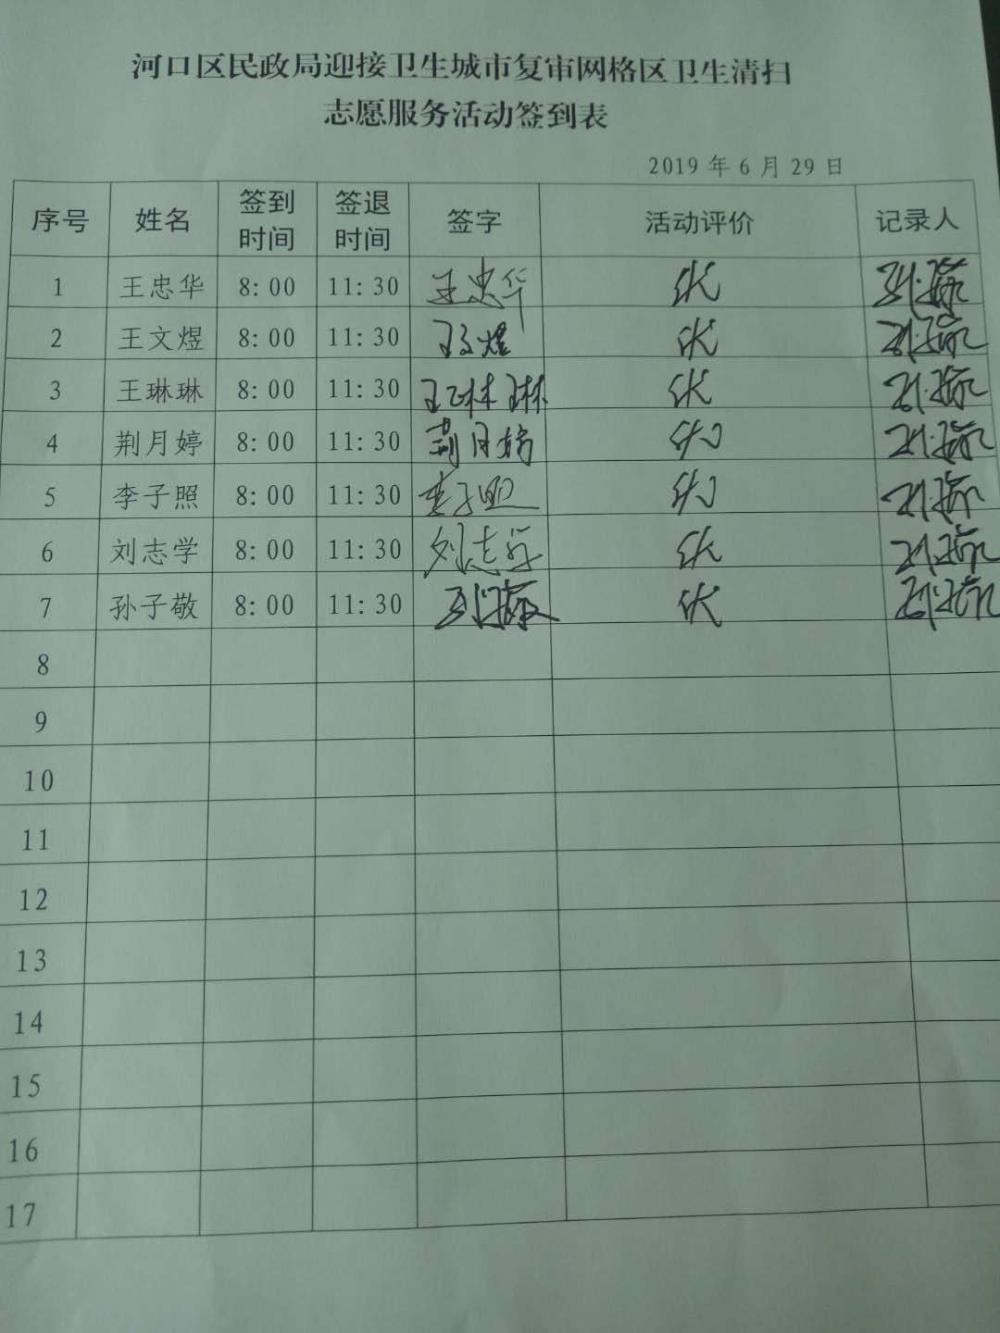 河口区民政局迎接卫生城市复审网格区卫生清扫
志愿服务活动签到表
2019 年 6 月 29 日
序号 姓名 签到时间 签退时间 签字 活动评价 记录人
1 王忠华 8:00 11:30 王忠华 优
2 王文煜 8:00 11:30 王文煜 优
3 王琳琳 8:00 11:30 王琳琳 优
4 荆月婷 8:00 11:30 荆月婷 优
5 李子照 8:00 11:30 李子照 优
6 刘志学 8:00 11:30 刘志学 优
7 孙子敬 8:00 11:30 优
8
9
10
11
12
13
14
15
16
17